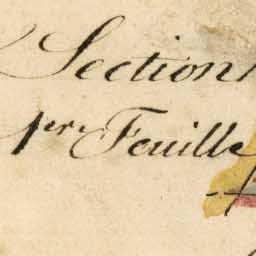 Section
1ere Feuille